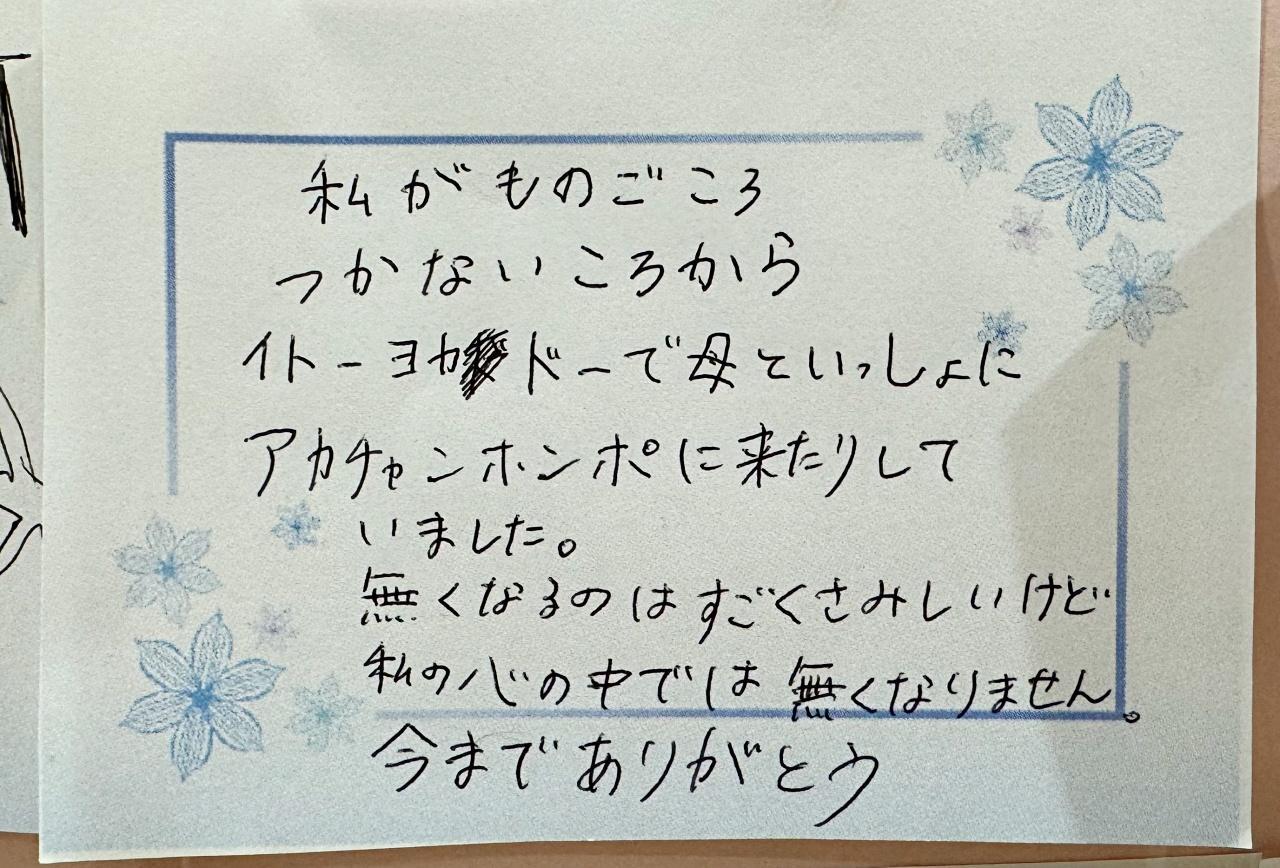 私がものごころ
つかないころから
イトーヨカドーで母といっしょに
アカチャンホンポに来たりして
いました。
無くなるのはすごくさみしいけど
私の心の中では無くなりません。
今までありがとう